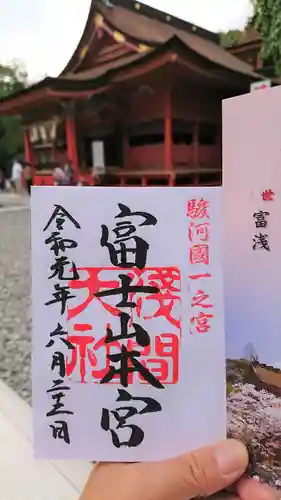 世
富
浅
駿河國一之宮
富士山本宮
淺間
大社
令和元年六月二十二日